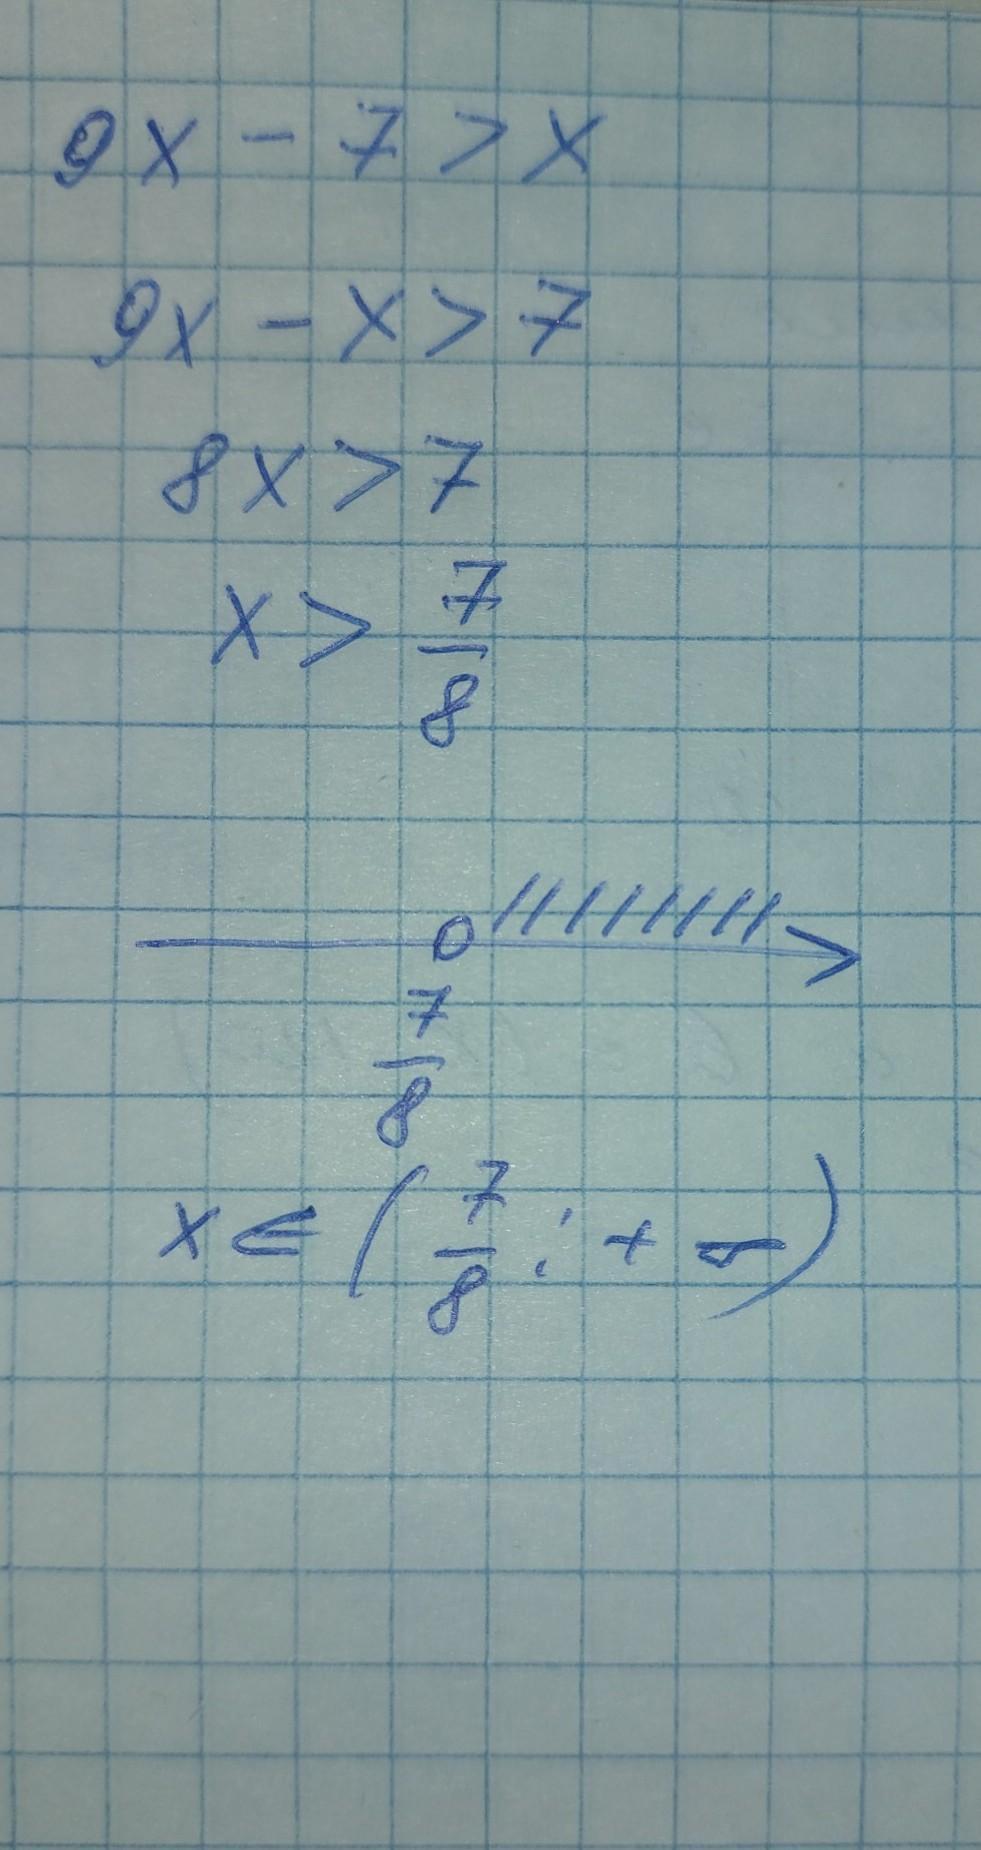 9x - 7 > x
9x - x > 7
8x > 7
x > 7/8
7/8
x ∈ (7/8; + ∞)